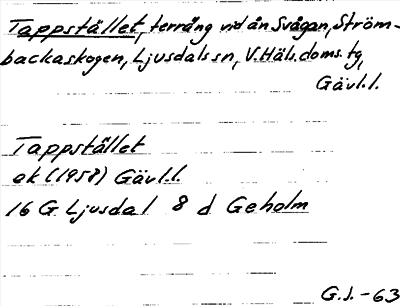 Tappstället, terräng vid ån Svågan, Ström-
backaskogen, Ljusdals sn, V. Häls. doms. tg,
Gävl. l.
Tappstället
ek (1958) Gävl. l.
16 G Ljusdal 8 d Geholm
G. J. - 63